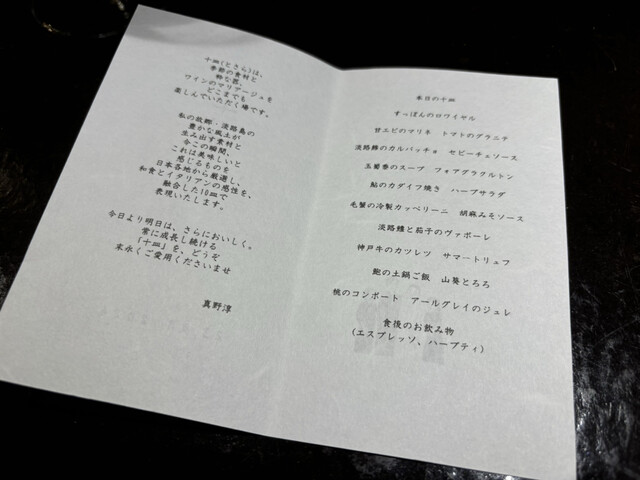 十皿(とさら)は、
季節の食材と
粋な器、
ワインのマリアージュを
どこまでも
楽しんでいただく場です。
私の故郷・淡路島の
豊かな風土が
生み出す素材と
今この瞬間、
これは美味しいと
感じるものを
日本各地から厳選し、
和食とイタリアンの感性を、
融合した10皿で
表現いたします。
今日より明日は、さらにおいしく。
常に成長し続ける
「十皿」を、どうぞ
末永くご愛用くださいませ
真野淳
本日の十皿
すっぽんのロワイヤル
甘エビのマリネ トマトのグラニテ
淡路鱒のカルパッチョ セビーチェソース
玉蜀黍のスープ フォアグラクルトン
鮎のカダイフ焼き ハーブサラダ
毛蟹の冷製カッペリーニ 胡麻みそソース
淡路鱧と茄子のヴァポーレ
神戸牛のカツレツ サマートリュフ
鮑の土鍋ご飯 山葵とろろ
桃のコンポート アールグレイのジュレ
食後のお飲み物
(エスプレッソ、ハーブティ)